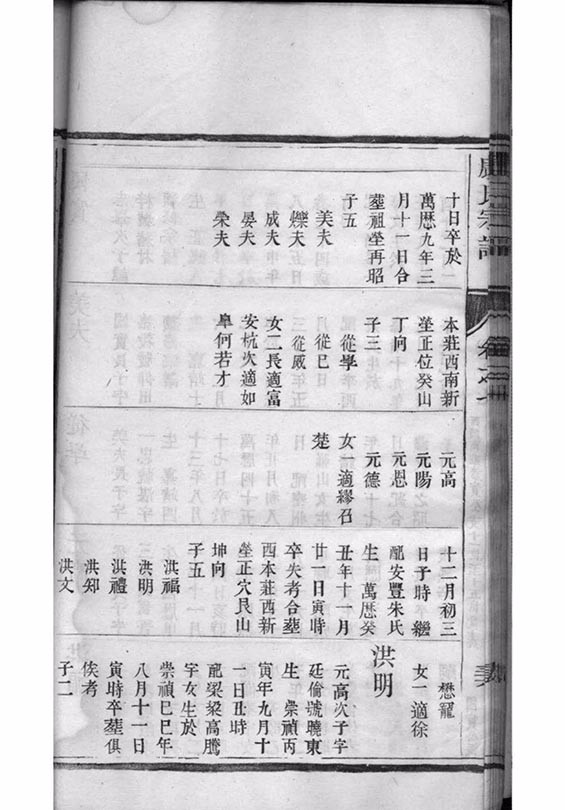 盧氏宗譜
十日卒於
萬曆九年三
月十一日合
塟祖塋再昭
子五
美夫
爍夫
成夫
晏夫
荣夫
本莊酉南新
塋正位癸山
丁向
子三
從學
從巳
三從威
女二長適富
安杭次適如
臯何若才
元高
元陽
元恩
元德
女一適繆召
楚
十二月初三
日子時繼
配安豐朱氏
生 萬曆癸
丑年十一月
廿一日寅時
卒失考合塟
酉本莊酉新
塋正穴艮山
坤向
子五
洪福
洪明
洪禮
洪知
洪文
懋寵
女一適徐
洪明
元高次子字
廷倫號曉東
生 崇禎丙
寅年九月十
一日丑時
配梁梁高騰
字女生於
崇禎巳巳年
八月十一日
寅時卒塟俱
俟考
子二